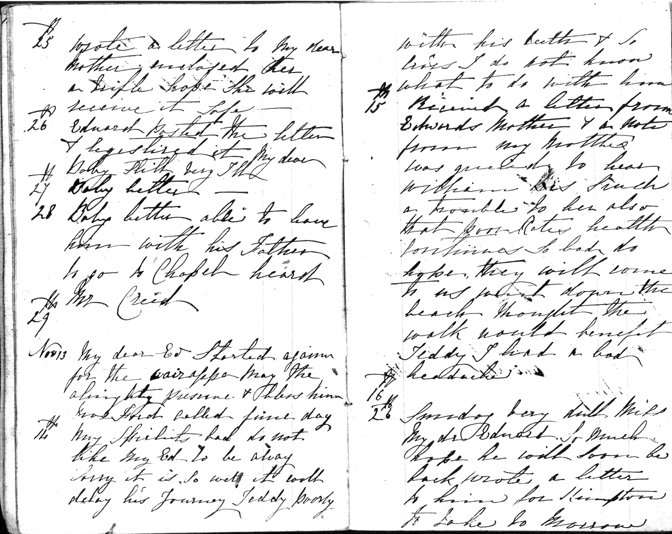 25th wrote a letter to my dear
Mother enclosed her
a trifle hope she will
receive it safe —
26th Eduard Posted the letter
& registered it My dear
Baby Still very Ill
27th Baby better —
28 Baby better able to leave
him with his Father
to go to Chapel heard
Mr Creed
29th
Nov 13 My dear Ed Started again
for the wairappa May the
almighty preserve & bless him
Mrs Shot called fine day
14th My Spirits bad do not
like My Ed to be away
Sorry it is So wet it will
delay his Journey Teddy Poorly
with his teeth & So
Cross I do not know
what to do with him
15th Received a letter from
Edwards Mother & a note
from my Mother
was grieved to hear
William is Such
a trouble to her also
that poor Kates health
Continues So bad do
hope they will come
to us went down the
beach thought the
walk would benefit
Teddy I had a bad
headache
16th
26th Sunday very dull Miss
My dr Eduard So Much
hope he will Soon be
back wrote a letter
to him for Kimpton
to Take to Morrow